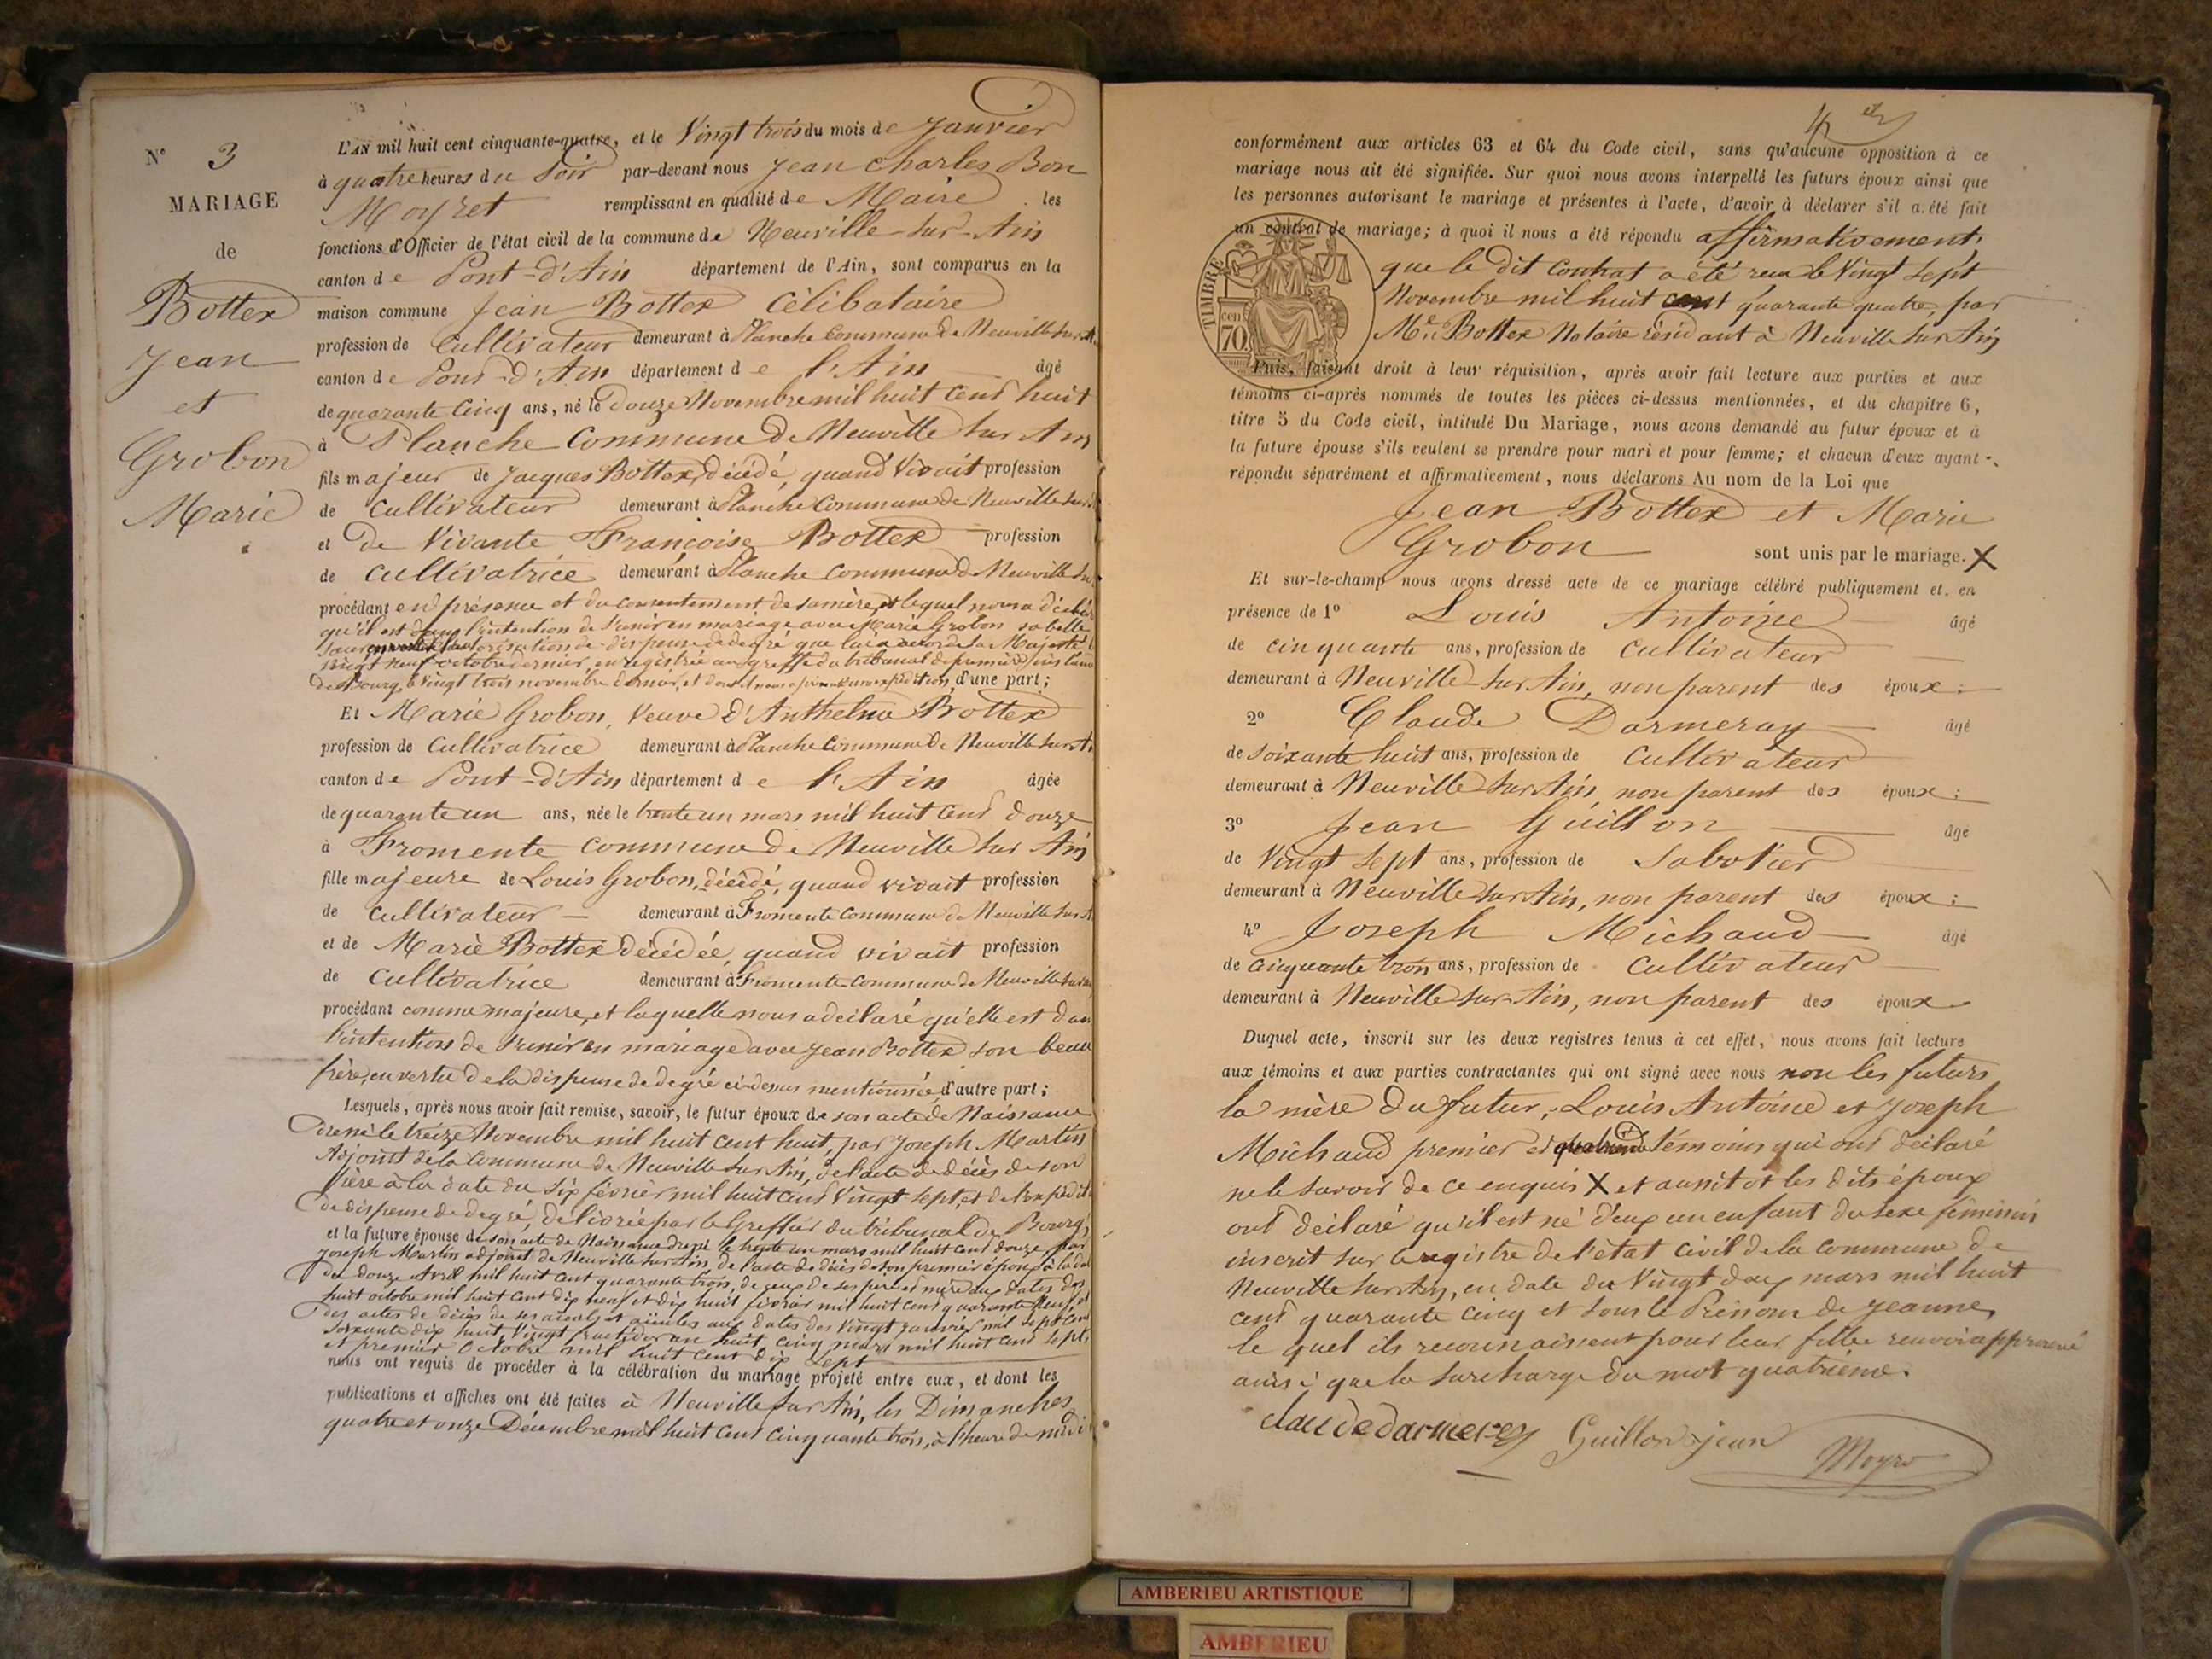 N° 3
MARIAGE
de
Bottex
Jean
et
Grobon
Marie
L'AN mil huit cent cinquante-quatre, et le Vingt trois du mois de Janvier
à quatre heures du Soir par-devant nous Jean Charles Bon
Moyret remplissant en qualité de Maire les
fonctions d'Officier de l'état civil de la commune de Neuville-sur-Ain
canton de Pont-d'Ain département de l'Ain, sont comparus en la
maison commune Jean Bottex Célibataire
profession de Cultivateur demeurant à Planche Commune de Neuville sur A.
canton de Pont-d'Ain département de l'Ain âgé
de quarante Cinq ans, né le Douze Novembre mil huit Cent huit
à Planche Commune de Neuville sur Ain
fils majeur de Jacques Bottex, décédé, quand Vivait profession
de Cultivateur demeurant à Planche Commune de Neuville sur
et De Vivante Françoise Bottex profession
de Cultivatrice demeurant à Planche Commune de Neuville Su
procédant en présence et du consentement de sa mère, et lequel nous a décla
qu'il est dans l'intention de s'unir en mariage avec Marie Grobon sa belle
Soeur en vertu de l'autorisation de dispense de degré que lui a accordé sa Majesté l
vingt neuf octobre dernier, enregistrée au greffe du tribunal de première instance
de Bourg, le vingt trois novembre dernier, et dont il nous a remis une expédition, d'une part;
Et Marie Grobon, Veuve d'Anthelme Bottex
profession de Cultivatrice demeurant à Planche Commune de Neuville sur A.
canton de Pont-d'Ain département de l'Ain âgée
de quarante un ans, née le trente un mars mil huit Cent douze
à Fromente Commune de Neuville sur Ain
fille majeure de Louis Grobon, décédé, quand vivait profession
de Cultivateur demeurant à Fromente Commune de Neuville sur A
et de Marie Bottex décédée, quand vivait profession
de Cultivatrice demeurant à Fromente Commune de Neuville sur Ain
procédant comme majeure, et laquelle nous a déclaré qu'elle est dans
l'intention de s'unir en mariage avec Jean Bottex son beau
frère, en vertu de la dispense de degré ci-dessus mentionnée, d'autre part;
Lesquels, après nous avoir fait remise, savoir, le futur époux de son acte de Naissance
Dressé le treize Novembre mil huit cent huit, par Joseph Martin
Adjoint de la Commune de Neuville sur Ain, de l'acte de décès de son
Père à la date du six février mil huit cent Vingt sept, et de l'expédit.
de dispense de degré, délivrée par le Greffier du tribunal de Bourg,
et la future épouse de son acte de Naissance dressé le trente un mars mil huit cent douze, par
Joseph Martin adjoint de Neuville sur Ain, de l'acte de décès de son premier époux à la date
du douze Avril mil huit cent quarante trois, de ceux de ses père et mère aux dates des
huit octobre mil huit cent dix neuf et dix huit février mil huit cent quarante neuf, et
des actes de décès de ses aïeuls et aïeules aux dates des Vingt janvier mil sept cent
soixante dix huit, Vingt fructidor an huit, cinq mars mil huit cent sept,
et premier Octobre mil huit cent dix sept
nous ont requis de procéder à la célébration du mariage projeté entre eux, et dont les
publications et affiches ont été faites à Neuville sur Ain, les Dimanches
quatre et onze Décembre mil huit cent cinquante trois, à l'heure de midi
conformément aux articles 63 et 64 du Code civil, sans qu'aucune opposition à ce
mariage nous ait été signifiée. Sur quoi nous avons interpellé les futurs époux ainsi que
les personnes autorisant le mariage et présentes à l'acte, d'avoir à déclarer s'il a été fait
un contrat de mariage; à quoi il nous a été répondu affirmativement,
que le dit Contrat a été reçu le Vingt sept
Novembre mil huit cent quarante quatre, par
Me. Bottex Notaire résidant à Neuville sur Ain
TIMBRE
cen.
70
Puis, faisant droit à leur réquisition, après avoir fait lecture aux parties et aux
témoins ci-après nommés de toutes les pièces ci-dessus mentionnées, et du chapitre 6,
titre 5 du Code civil, intitulé Du Mariage, nous avons demandé au futur époux et à
la future épouse s'ils veulent se prendre pour mari et pour femme; et chacun d'eux ayant
répondu séparément et affirmativement, nous déclarons Au nom de la Loi que
Jean Bottex et Marie
Grobon sont unis par le mariage. X
Et sur-le-champ nous avons dressé acte de ce mariage célébré publiquement et en
présence de 1° Louis Antoine âgé
de cinquante ans, profession de Cultivateur
demeurant à Neuville-sur Ain, non parent des époux;
2° Claude Darmeray âgé
de soixante huit ans, profession de Cultivateur
demeurant à Neuville sur Ain, non parent des époux;
3° Jean Guillon âgé
de Vingt sept ans, profession de Sabotier
demeurant à Neuville sur Ain, non parent des époux;
4° Joseph Michaud âgé
de Cinquante trois ans, profession de Cultivateur
demeurant à Neuville sur Ain, non parent des époux
Duquel acte, inscrit sur les deux registres tenus à cet effet, nous avons fait lecture
aux témoins et aux parties contractantes qui ont signé avec nous non les futurs
la mère du futur, Louis Antoine et Joseph
Michaud premier et quatrième témoins qui ont déclaré
ne le savoir de ce enquis X et aussitot les dits époux
ont déclaré qu'il est né d'eux un enfant du sexe féminin
inscrit sur le registre de l'état civil de la Commune de
Neuville sur Ain, en date du Vingt deux mars mil huit
cent quarante cinq et sous le Prénom de Jeanne,
le quel ils reconnaissent pour leur fille renvoi approuvé
ainsi que la surcharge du mot quatrième.
claude darmerey Guillon jean Moyret
AMBERIEU ARTISTIQUE
AMBERIEU